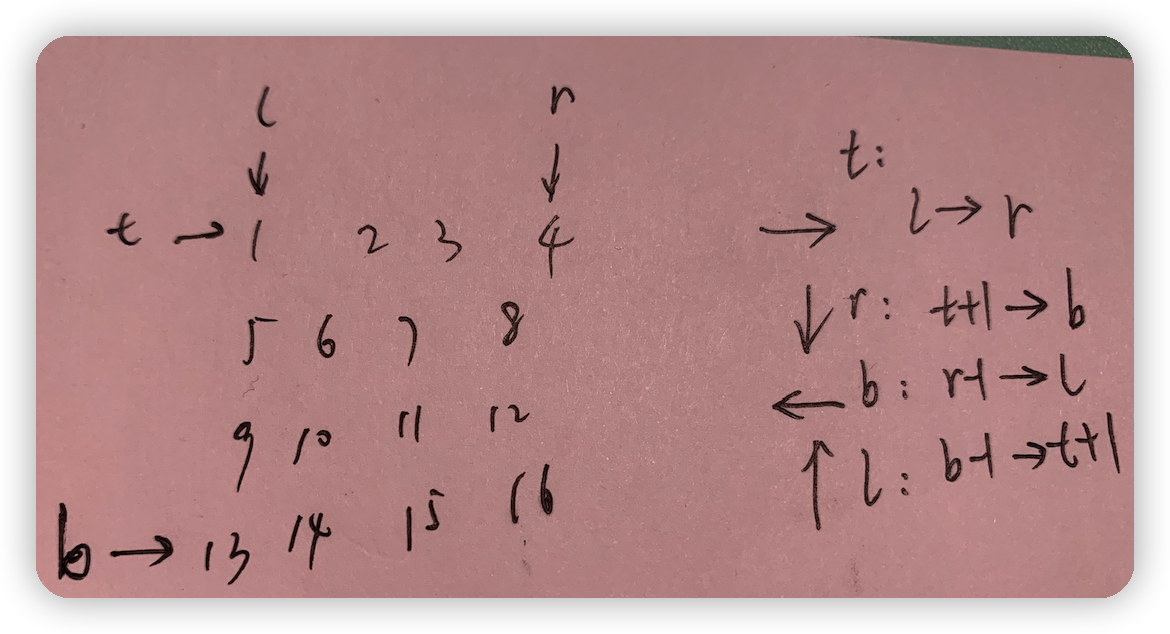 l r
↓ ↓
t → 1 2 3 4
5 6 7 8
9 10 11 12
b → 13 14 15 16
t:
→ l → r
↓ r: t+1 → b
← b: r-1 → l
↑ l: b-1 → t+1